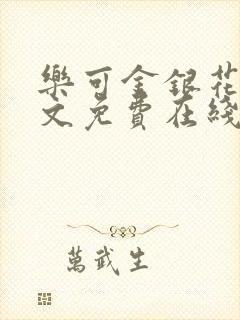 樂可金銀花
文免費在綫
萬武生